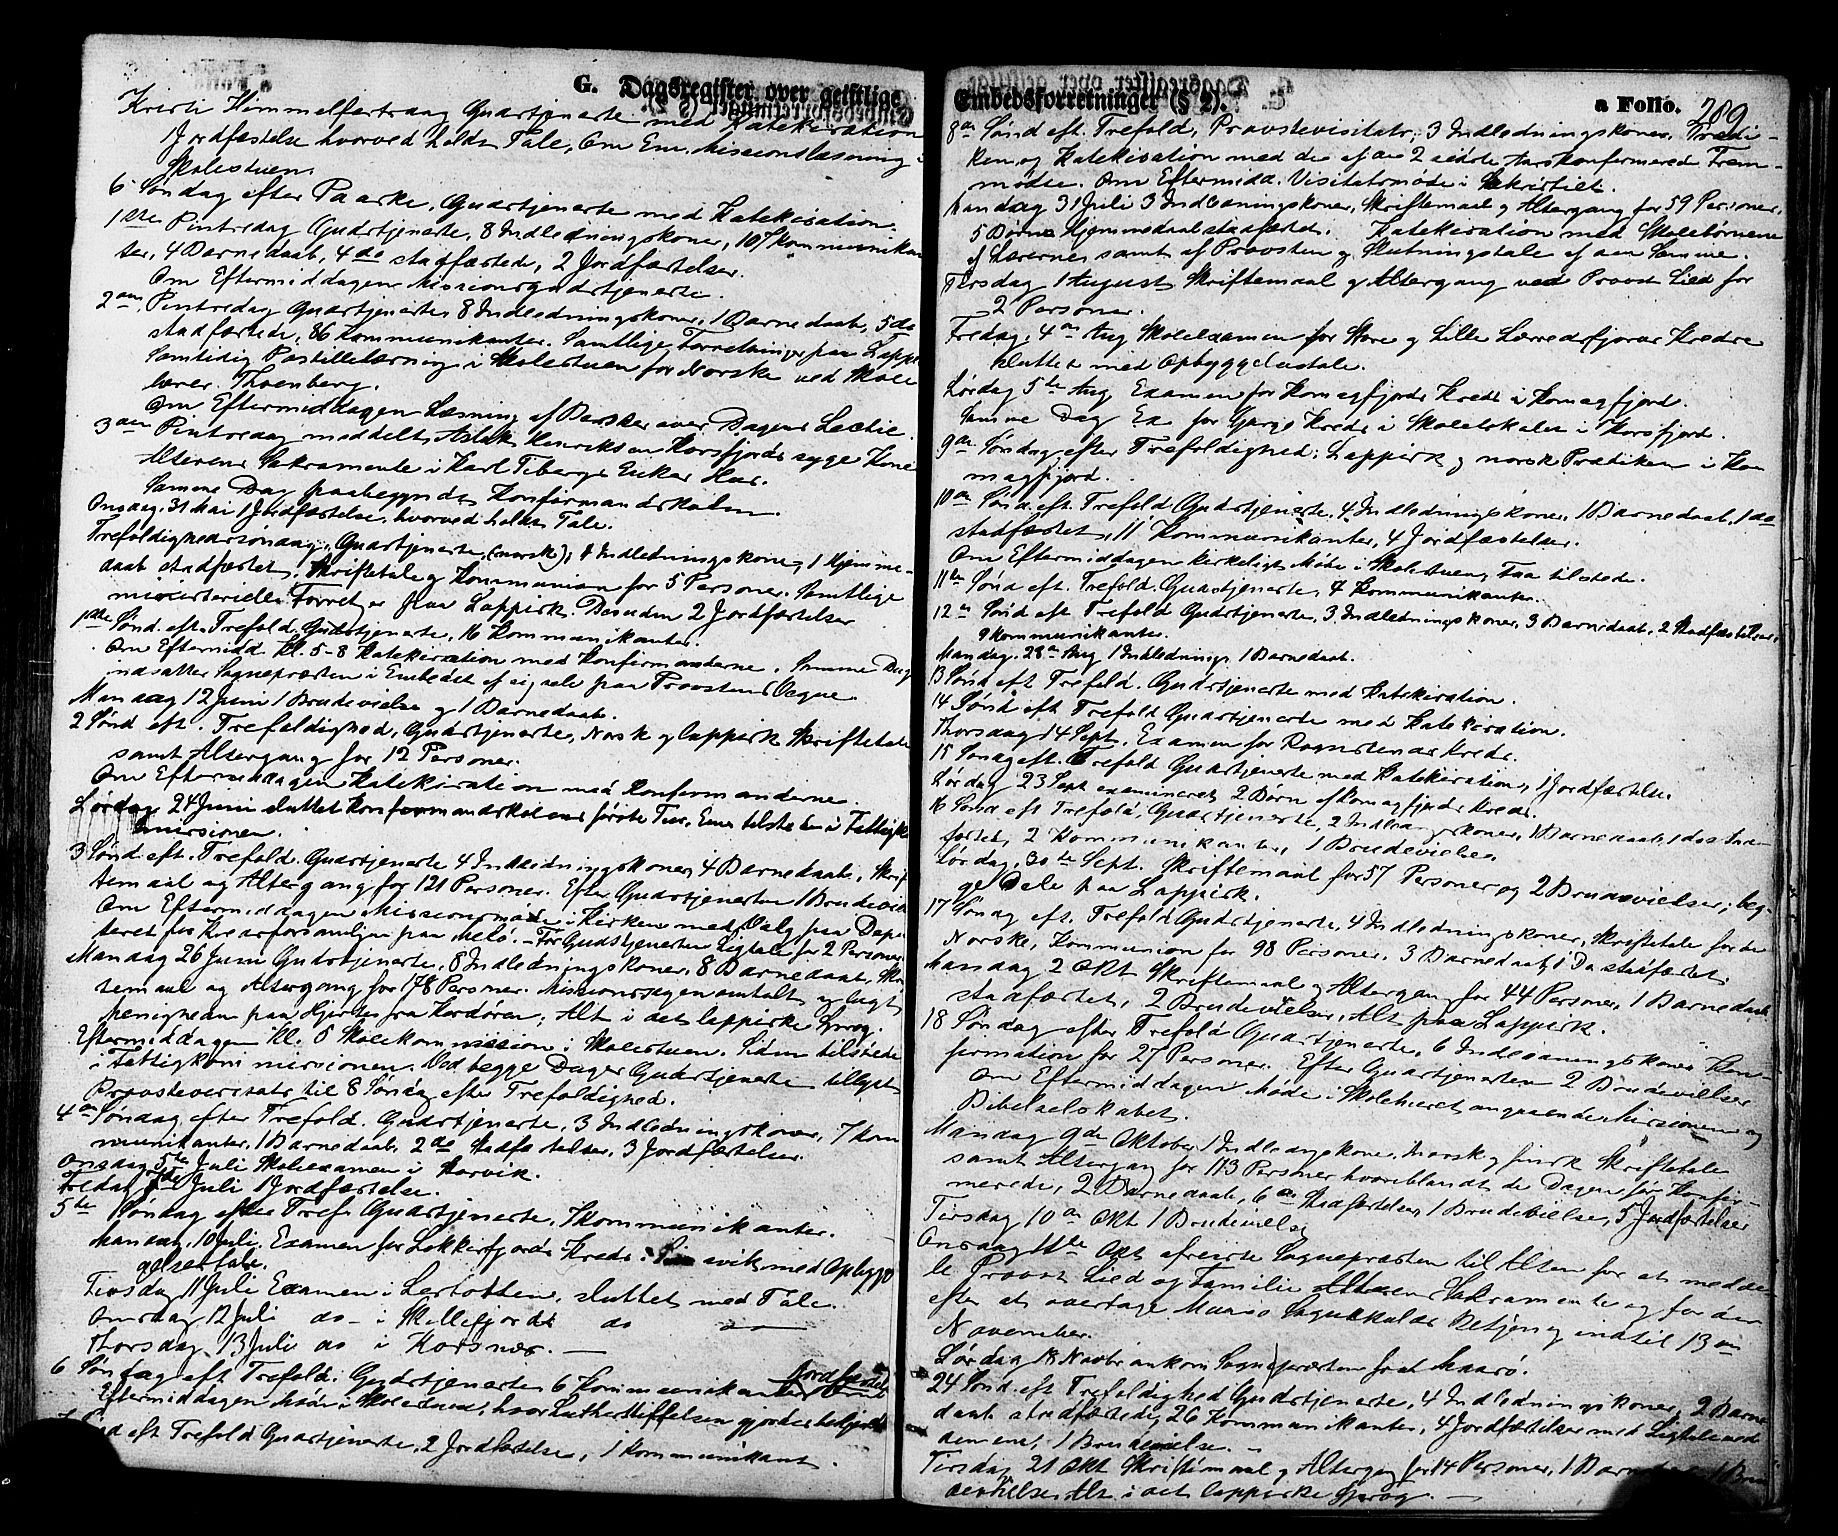 G. Dagsregister over geistlige
Kristi Himmelfartsdag Gudstjeneste med Katekisation
1 Jordfæstelse hvorved holdtes Tale, Om Em. Missionslæsning i
Skolestuen.
6 Søndag efter Paaske, Gudstjeneste med Katekisation.
1ste Pintsedag Gudstjeneste, 8 Indledningskoner, 107 Kommunikan
ter, 4 Barnedaab, 4 do stadfæstede, 2 Jordfæstelser.
Om Eftermiddagen Missionsgudstjeneste.
2den Pintsedag Gudstjeneste 8 Indledningskoner, 1 Barnedaab, 5 do
stadfæstede, 86 Kommunikanter. Samtlige Forretninger paa Lappisk
Samtidig Postillelæsning i Skolestuen for Norske ved Skole
lærer Thomberg.
Om Eftermiddagen Læsning af over Dagens Lectie.
3den Pintsedag meddelt Aslak Henriksen Korsfjords syge Kone
Alterens Sakramente i Karl Enkes Hus.
Samme Dag paabegyndtes Konfirmandskolen.
Onsdag 31 Mai 1 Jordfæstelse, hvorved holdtes Tale.
Trefoldighedssøndag, Gudstjeneste (norsk), 1 Indledningskone, 1 Hjemme-
daab stadfæstet, Skriftetale og Kommunion for 5 Personer. Samtlige
ministerielle Forretger paa Lappisk. Desuden 2 Jordfæstelser
1ste Sønd. eft. Trefold. Gudstjeneste, 16 Kommunikanter.
Om Eftermidd. Kl. 5-8 Katekisation med Konfirmanderne. Samme Dag
indsattes Sognepræsten i Embedet af sig selv paa Provstens Vegne.
Mandag 12 Juni 1 Brudevielse og 1 Barnedaab.
2 Sønd eft. Trefoldighed, Gudstjeneste, Norsk og lappisk Skriftetale
samt Altergang for 12 Personer.
Om Eftermiddagen Katekisation med Konfirmanderne.
Lørdag 24 Juni sluttet Konfirmandskolens første Tur, Em. tilstede i Fattigko
missionen.
3 Sønd. eft. Trefold. Gudstjeneste 4 Indledningskoner, 4 Barnedaab, Skrif
temaal og Altergang for 121 Personer. Efter Gudstjenesten 1 Brudevielse
Om Eftermiddagen Missionsmøde i Kirken med Valg paa Depu
teret for Kredsforsamlingen paa Melø. - Før Gudstjenesten Ligtale for 2 Personer.
Mandag 26 Juni Gudstjeneste, 8 Indledningskoner, 8 Barnedaab, Skrif
temaal og Altergang for 178 Personer. Missionssagen omtalt og lagt
Menigheden paa Hjertet fra Kordøren; Alt i det lappiske Sprog.
Eftermiddagen Kl. 5 Skolekommission i Skolestuen. Siden tilstede
i Fattigkommissionen. Ved begge Dages Gudstjeneste tillyst
Provstevisitats til 8 Søndag efter Trefoldighed.
4de Søndag efter Trefold. Gudstjeneste, 3 Indledningskoner, 7 Kom
munikanter, 1 Barnedaab, 2 do Stadfæstelser, 3 Jordfæstelser.
Onsdag 5te Juli Skoleexamen i Korvik.
Fredag 7de Juli 1 Jordfæstelse.
5te Søndag efter Tref. Gudstjeneste, 7 Kommunikanter.
Mandag 10 Juli. Examen for Lokkerfjords Kreds i vik med Opbygg
gelsestale.
Tirsdag 11 Juli Examen i Lerbotten, sluttet med Tale.
Onsdag 12 Juli do - i Skillefjord do
Thorsdag 13 Juli do i Korsnes. —
6 Søndag eft Trefold. Gudstjeneste 6 Kommunikanter, Jordfæstel
Eftermiddagen Møde i Skolestuen, hvor Lutherstiftelsen gjordes bekjendt
7 Sønd eft Trefold Gudstjeneste, 2 Jordfæstelse, 1 Kommunikant.
Embedsforretninger (§ 2). a Folio. 289
8de Sønd eft. Trefold, Provstevisitats; 3 Indledningskoner, Prædi-
ken og Katekisation med de af de 2 sidste Aars konfirmerede Frem-
mødte. Om Eftermidd. Visitatsmøde i Sakristiet.
Mandag 31 Juli 3 Indledningskoner, Skriftemaal og Altergang for 59 Personer,
5 Børns Hjemmedaab stadfæstet. Katekisation med Skolebørnene
af Lærerne samt af Provsten og Slutningstale af den Samme.
Tirsdag 1 August Skriftemaal og Altergang ved Provst Lied for
2 Personer.
Fredag 4de Aug Skoleexamen for Store og Lille Lerresfjords Kredse
sluttet med Opbyggelsestale.
Lørdag 5te Aug Examen for Komagfjords Kreds i Komagfjord.
Samme Dag Ex for Kreds i Skolelokalet i Korsfjord.
9de Søndag efter Trefoldighed: Lappisk og norsk Prædiken i Ko
magfjord.
10de Sønd. eft. Trefold Gudstjeneste, 4 Indledningskoner, 1 Barnedaab, 1 do
stadfæstet, 11 Kommunikanter, 4 Jordfæstelser.
Om Eftermiddagen kirkeligt Møde i Skolestuen, Faa tilstede.
11te Sønd eft. Trefold. Gudstjeneste, 4 Kommunikanter.
12te Sønd eft. Trefold Gudstjeneste, 3 Indledningskoner, 3 Barnedaab, 2 Stadfæstelser,
9 Kommunikanter.
Mandag 28de Aug 1 Indlednings, 1 Barnedaab.
13 Sønd eft Trefold. Gudstjeneste med Katekisation.
14 Sønd eft Trefold Gudstjeneste med Katekisation.
Thorsdag 14 Sept. Examen for Rognsunds Kreds.
15 Søndag eft. Trefold Gudstjeneste med Katekisation, 1 Jordfæstelse.
Lørdag 23 Sept examineret 2 Børn af Komagfjords Kreds.
16 Sønd eft Trefold, Gudstjeneste, 2 Indledningskoner, 1 Barnedaab, 1 do stad-
fæstet, 2 Kommunikanter, 1 Brudevielse.
Lørdag 30te Sept. Skriftemaal for 57 Personer og 2 Brudevielser; beg-
ge Dele paa Lappisk.
17 Søndag eft. Trefold Gudstjeneste, 4 Indledningskoner, Skriftetale for de
Norske, Kommunion for 98 Personer, 3 Barnedaab, 1 Do stadfæstet.
Mandag 2 Okt Skriftemaal og Altergang for 44 Personer, 1 Barnedaab
stadfæstet, 2 Brudevielser, Alt paa Lappisk.
18 Søndag efter Trefold Gudstjeneste, 6 Indledningskoner, Kon-
firmation for 27 Personer. Efter Gudstjenesten 2 Brudevielser
Om Eftermiddagen Møde i Skolehuset angaaende Missionen og
Bibelselskabet.
Mandag 9de Oktober 1 Indledngskone, Norsk og finsk Skriftetale
samt Altergang for 113 Personer hvoriblandt de Dagen før Konfir-
merede, 2 Barnedaab, 6 do Stadfæstelser, 1 Brudevielse, 5 Jordfæstelser
Tirsdag 10de Okt 1 Brudevielse
Onsdag 11te Okt afreiste Sognepræsten til Alten for at medde-
le Provst Lied og Familie Alterens Sakramente og for der
efter at overtage Maasø Sognekalds Betjening indtil 13de
November.
Lørdag 18 Novbr ankom Sognepræsten fra Maasø.
24 Sønd. eft Trefoldighed Gudstjeneste, 4 Indledningskoner, 2 Barne
daab stadfæstede, 26 Kommunikanter, 4 Jordfæstelser med Ligtale ved
den ene, 1 Brudevielse. -
Tirsdag 21 Okt Skriftemaal og Altergang for 14 Personer, 1 Barnedaab, 1 Bru
devielse Alt i det lappiske Sprog. —